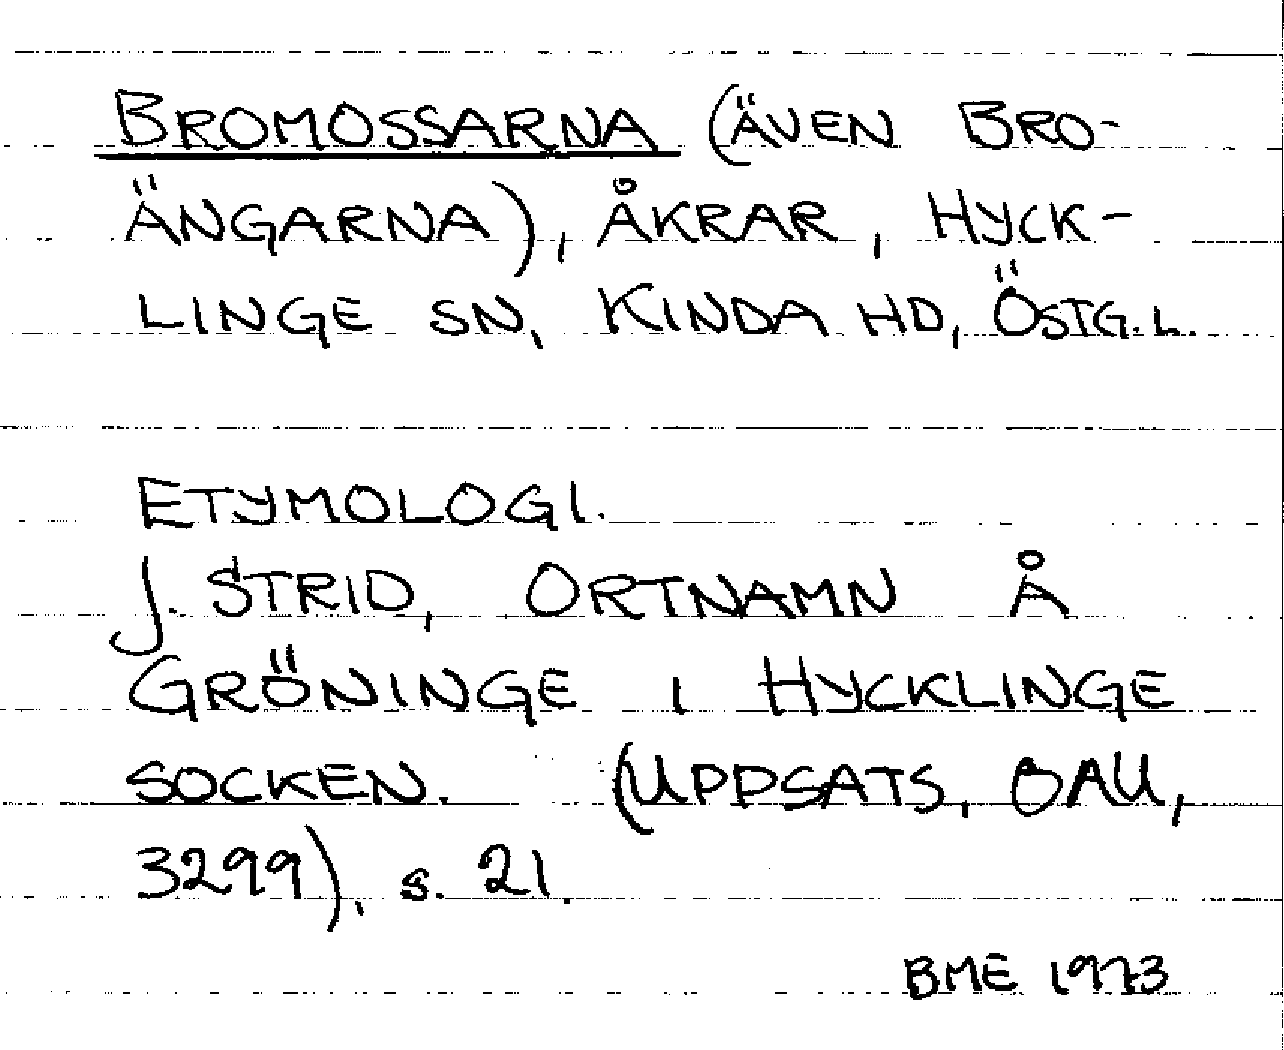 BROMOSSARNA (ÄVEN BRO-
ÄNGARNA), ÅKRAR, HYCK-
LINGE SN, KINDA HD, ÖSTG.L.
ETYMOLOGI.
J. STRID, ORTNAMN Å
GRÖNINGE I HYCKLINGE
SOCKEN. (UPPSATS, OAU,
3299), s. 21.
BME 1973